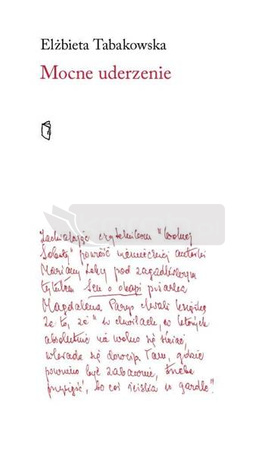 Elżbieta Tabakowska
Mocne uderzenie
Zachwalając czytelnikom "Wolnej
Soboty" powieść niemieckiej autorki
Mariany Leky pod zagadkowym
tytułem Sen o okapi pisarka
Magdalena Parys chwali książkę
że tej, że "w chwilach, w których
absolutnie nie wolno się śmiać,
wkrada się dowcip tam, gdzie
powinno być zabawnie, trzeba
przysiąść, bo coś ściska w gardle".